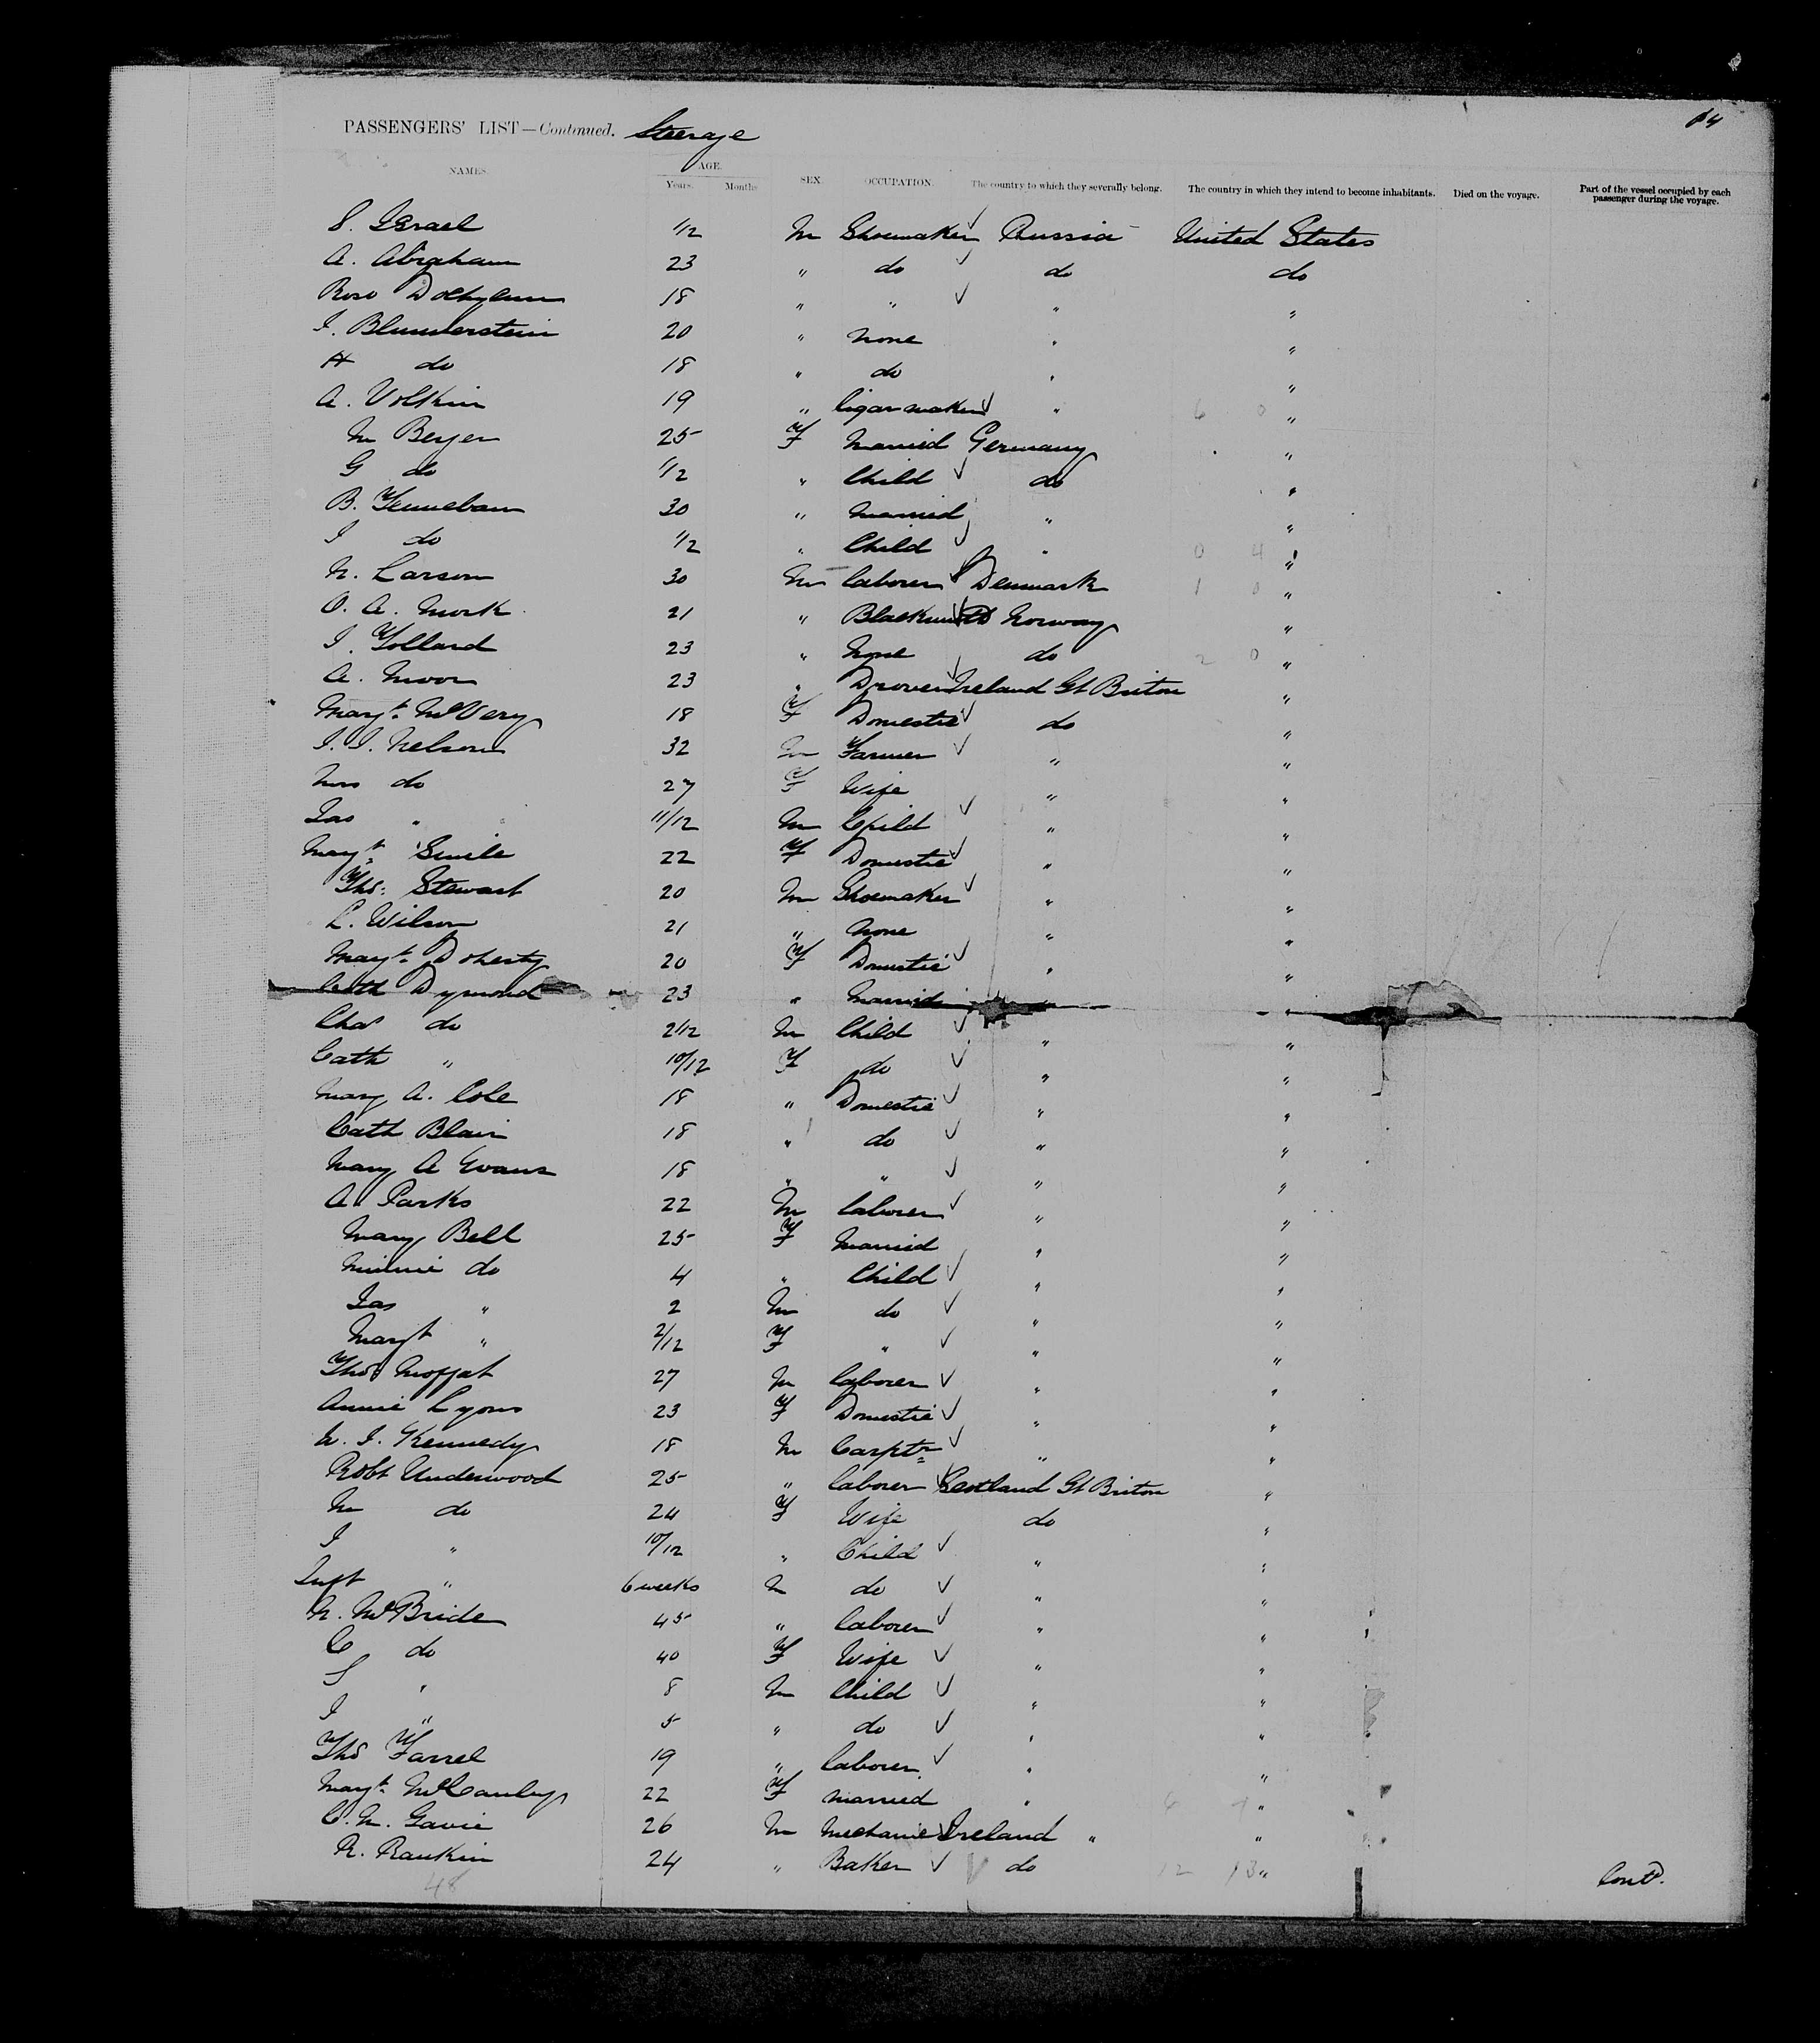 14
PASSENGERS' LIST—Continued. Steerage
NAMES. AGE. Years. Months SEX. OCCUPATION. The country to which they severally belong. The country in which they intend to become inhabitants. Died on the voyage. Part of the vessel occupied by each passenger during the voyage.
S. Israel 1/2 M Shoemaker Russia United States
A. Abraham 23 " do do do
Rose 18 " " " "
I. Blumerstein 20 " None " "
H do 18 " do " "
A. Volkin 19 " Cigar maker " "
M Beyer 25 F Married Germany "
G do 1/2 " Child do "
B. Tennebaum 30 " Married " "
I do 1/2 " Child " "
N. Larson 30 M Laborer Denmark "
O. A. Mork 21 " Blacksmith Norway "
I. Tolland 23 " None do "
A. Moor 23 " Drover Ireland Gt Briton "
Margt. McVery 18 F Domestic do "
I. I. Nelson 32 M Farmer " "
Mrs do 27 F Wife " "
Jas " 11/12 M Child " "
Margt. Smile 22 F Domestic " "
Thos. Stewart 20 M Shoemaker " "
L. Wilson 21 " None " "
Margt. Doherty 20 F Domestic " "
Cath Dymond 23 " Married " "
Chas do 2/12 M Child " "
Cath " 10/12 F do " "
Mary A. Cole 18 " Domestic " "
Cath Blair 18 " do " "
Mary A Evans 18 " " " "
A. Parks 22 M Laborer " "
Mary Bell 25 F Married " "
Minnie do 4 " Child " "
Jas " 2 M do " "
Margt " 2/12 F " " "
Thos Moffat 27 M Laborer " "
Annie Lyons 23 F Domestic " "
W. I. Kennedy 18 M Carptr " "
Robt Underwood 25 " Laborer Scotland Gt Briton "
M do 24 F Wife do "
I " 10/12 " Child " "
Inft " 6 weeks M do " "
N. McBride 45 " Laborer " "
C do 40 F Wife " "
S " 8 M Child " "
I " 5 " do " "
Thos Farrel 19 " Laborer " "
Margt. McCauley 22 F Married " "
C. M. Gavie 26 M Mechanic Ireland " "
R. Rankin 24 " Baker do "
48 12 13 Contd.